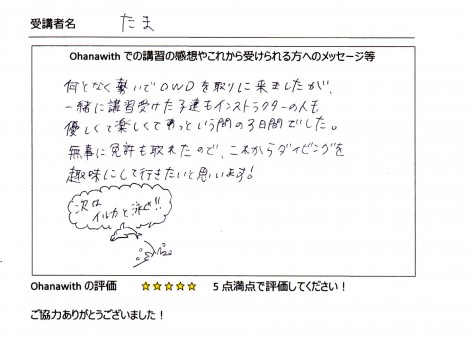 受講者名 たま
Ohanawith での講習の感想やこれから受けられる方へのメッセージ等
何となく勢いでOWDを取りに来ましたが、
一緒に講習受けた子達もインストラクターの人も
優しくて楽しくてあっという間の3日間でした。
無事に免許も取れたので、これからダイビングを
趣味にして行きたいと思います!
次は
イルカと泳ぐ!!
Ohanawith の評価 ☆☆☆☆☆ 5 点満点で評価してください！
ご協力ありがとうございました！